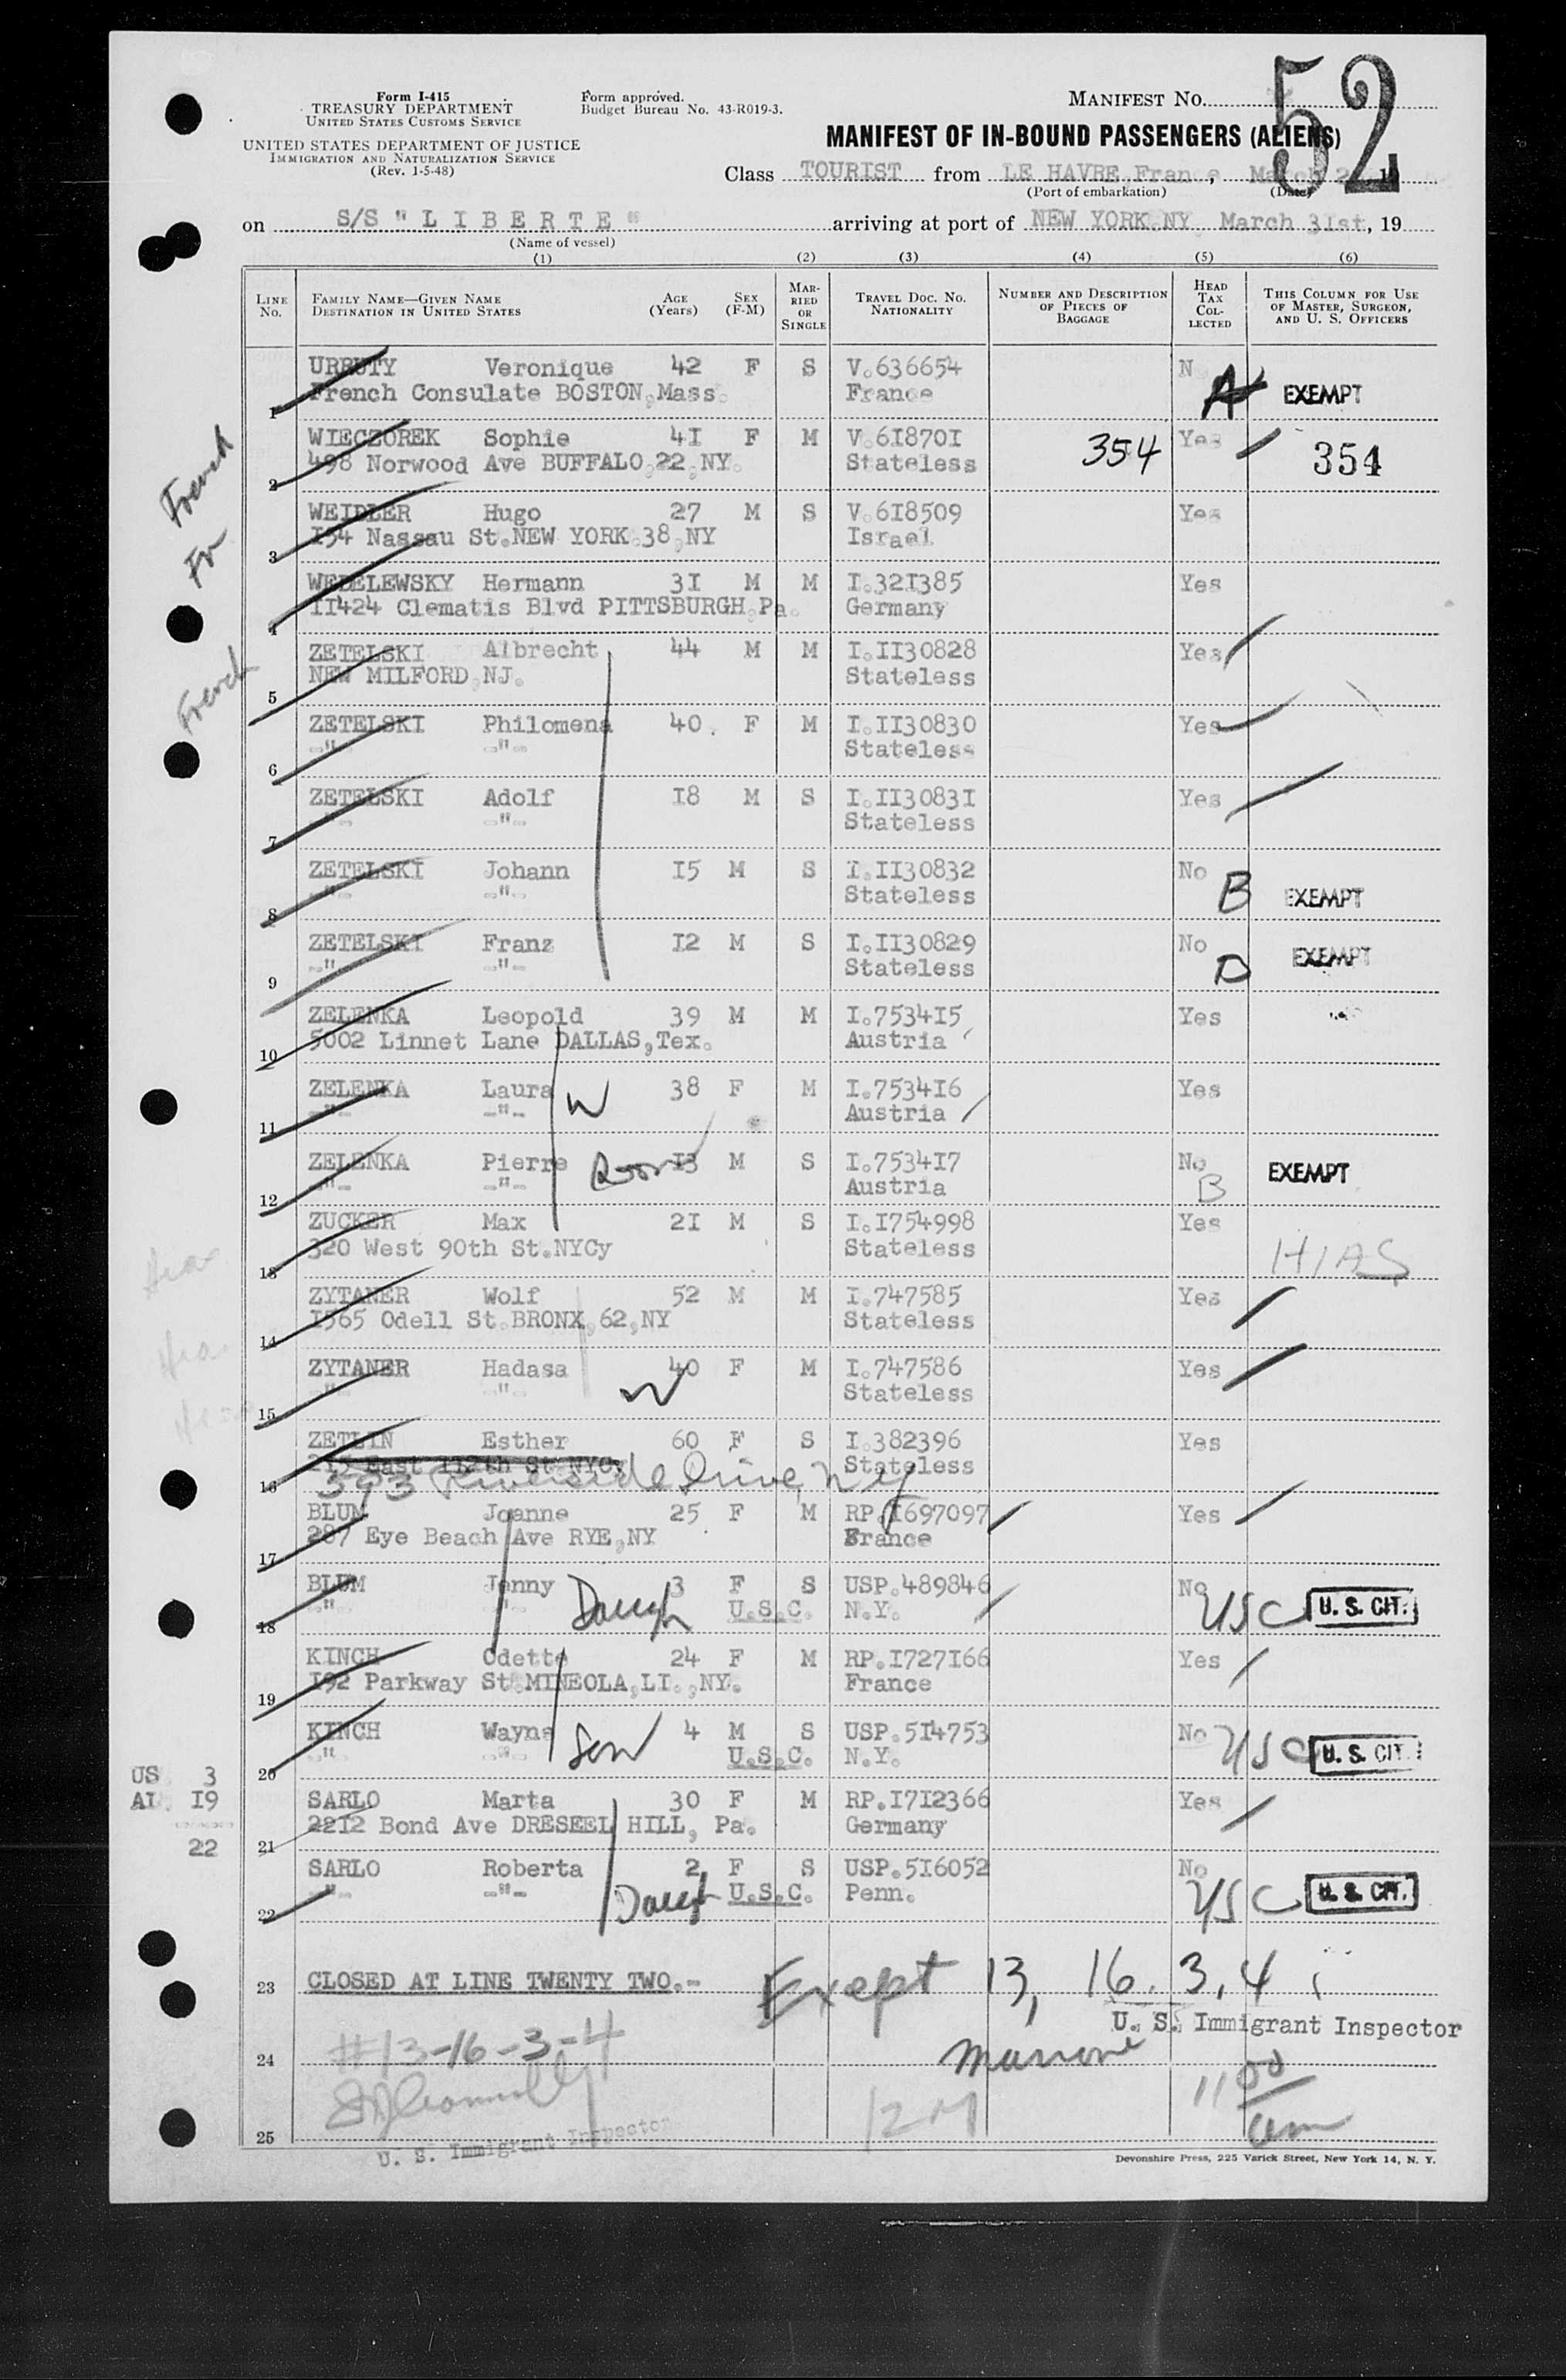 52
Form I-415
TREASURY DEPARTMENT
UNITED STATES CUSTOMS SERVICE
UNITED STATES DEPARTMENT OF JUSTICE
IMMIGRATION AND NATURALIZATION SERVICE
(Rev. 1-5-48)
Form approved.
Budget Bureau No. 43-R019-3.
MANIFEST No.
MANIFEST OF IN-BOUND PASSENGERS (ALIENS)
Class TOURIST from LE HAVRE, France, March
(Port of embarkation) (Date)
on S/S "LIBERTE" arriving at port of NEW YORK.NY March 31st, 19
(Name of vessel)
(1) (2) (3) (4) (5) (6)
LINE No. FAMILY NAME—GIVEN NAME DESTINATION IN UNITED STATES AGE (Years) SEX (F-M) MARRIED OR SINGLE TRAVEL DOC. NO. NATIONALITY NUMBER AND DESCRIPTION OF PIECES OF BAGGAGE HEAD TAX COLLECTED THIS COLUMN FOR USE OF MASTER, SURGEON, AND U. S. OFFICERS
URRUTY Veronique 42 F S V.636654 N A EXEMPT
1 French Consulate BOSTON,Mass. France
WIECZOREK Sophie 4I F M V.6I870I 354 Yes 354
2 498 Norwood Ave BUFFALO,22,NY. Stateless
French
WEIDLER Hugo 27 M S V.6I8509 Yes
3 I54 Nassau St.NEW YORK.38,NY Israel
Fr
WEDELEWSKY Hermann 3I M M I.32I385 Yes
4 II424 Clematis Blvd PITTSBURGH,Pa. Germany
ZETELSKI Albrecht 44 M M I.II30828 Yes
5 NEW MILFORD,NJ. Stateless
French
ZETELSKI Philomena 40. F M I.II30830 Yes
6 -"- -"- Stateless
ZETELSKI Adolf I8 M S I.II3083I Yes
7 -"- -"- Stateless
ZETELSKI Johann I5 M S I.II30832 No B EXEMPT
8 -"- -"- Stateless
ZETELSKI Franz I2 M S I.II30829 No EXEMPT
9 -"- -"- Stateless
ZELENKA Leopold 39 M M I.7534I5 Yes
10 5002 Linnet Lane DALLAS,Tex. Austria
ZELENKA Laura W 38 F M I.7534I6 Yes
11 -"- -"- Austria
ZELENKA Pierre I3 M S I.7534I7 No B EXEMPT
12 -"- -"- Austria
ZUCKER Max 2I M S I.I754998 Yes HIAS
13 320 West 90th St.NYCy Stateless
ZYTANER Wolf 52 M M I.747585 Yes
14 I565 Odell St.BRONX,62,NY Stateless
ZYTANER Hadasa W 40 F M I.747586 Yes
15 -"- -"- Stateless
ZETLIN Esther 60 F S I.382396 Yes
East 112th St NYCy Stateless
16 393 Riverside Drive, NY
BLUM Joanne 25 F M RP.I697097 Yes
17 287 Eye Beach Ave RYE,NY France
BLUM Jenny Daugh 3 F S USP.489846 No USC U. S. CIT.
18 " " U.S.C. N.Y.
KINCH Odette 24 F M RP.I727I66 Yes
19 I92 Parkway St.MINEOLA,LI.,NY. France
KINCH Wayne Son 4 M S USP.5I4753 No USC U. S. CIT.
20 -"- -"- U.S.C. N.Y.
US 3
AL. I9
22
SARLO Marta 30 F M RP.I7I2366 Yes
21 22I2 Bond Ave DRESEEL HILL, Pa. Germany
SARLO Roberta 2 F S USP.5I6052 No USC U. S. CIT.
22 -"- -"- Daugh U.S.C. Penn.
23 CLOSED AT LINE TWENTY TWO.- Exept 13, 16. 3, 4
U. S. Immigrant Inspector
#13-16-3-4
24
25
U. S. Immigrant Inspector
Devonshire Press, 225 Varick Street, New York 14, N. Y.